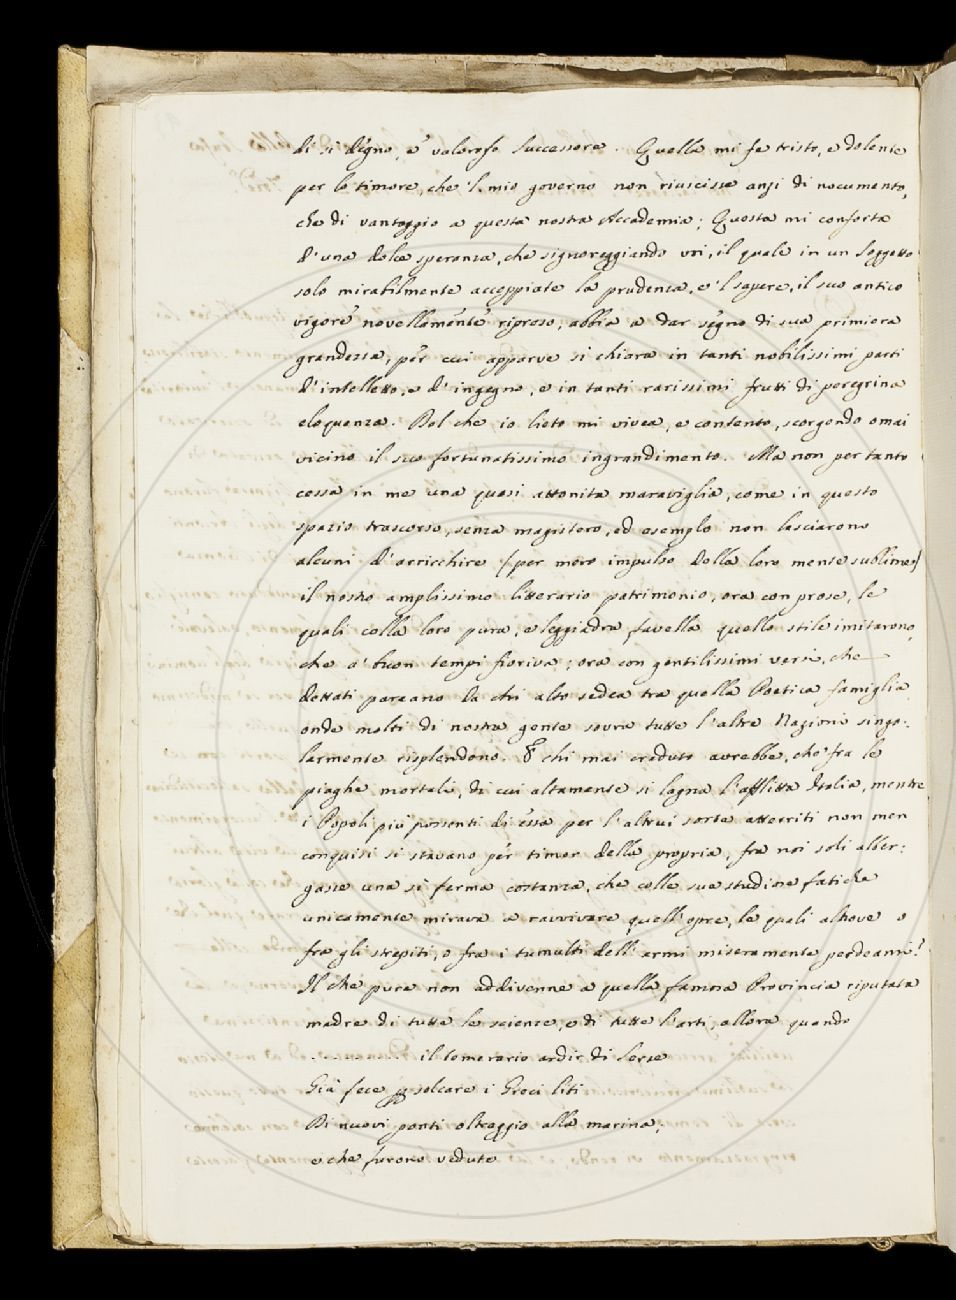 di si degno, e valoroso Successore. Quella mi fe tristo, e dolente
per lo timore, che 'l mio governo non riuscisse anzi di nocumento,
che di vantaggio a questa nostra Accademia; Questa mi conforta
d'una dolce speranza, che signoreggiando voi, il quale in un Soggetto
solo mirabilmente accoppiate la prudenza, e 'l sapere, il suo antico
vigore novellamente ripreso, abbia a dar segno di sua primiera
grandezza, per cui apparve si chiara in tanti nobilissimi parti
d'intelletto, e d'ingegno, e in tanti rarissimi frutti di peregrina
eloquenza. Del che io lieto mi vivea, e contento, scorgendo omai
vicino il suo fortunatissimo ingrandimento. Ma non per tanto
cessa in me una quasi attonita maraviglia, come in questo
spazio trascorso, senza magistero, ed esemplo non lasciarono
alcuni d'arricchire (per mero impulso della loro mente sublime)
il nostro amplissimo litterario patrimonio, ora con prose, le
quali colla loro pura, e leggiadra favella quello stile imitarono,
che a' buon tempi fioriva; ora con gentilissimi versi, che
dettati pareano da chi alto sedea tra quella Poetica famiglia
onde molti di nostra gente sovra tutte l'altre Nazioni singo:
larmente risplendono. E chi mai creduto avrebbe, che fra le
piaghe mortali, di cui altamente si lagna l'afflitta Italia, mentre
i Popoli più possenti di essa per l'altrui sorte atterriti non men
conquisi si stavano per timor della propria, fra noi soli alber:
gasse una sì ferma costanza, che colle sue studiose fatiche
unicamente mirava a ravvivare quell'opre, le quali altrove o
fra gli strepiti, o fra i tumulti dell'armi miseramente perdeansi?
Il che pure non addivenne a quella famosa Provincia riputata
madre di tutte le scienze, e di tutte l'arti, allora quando
........... il temerario ardir di Serse
Già fece solcare i Greci liti
Di nuovi ponti oltraggio alla marina;
e che furono vedute